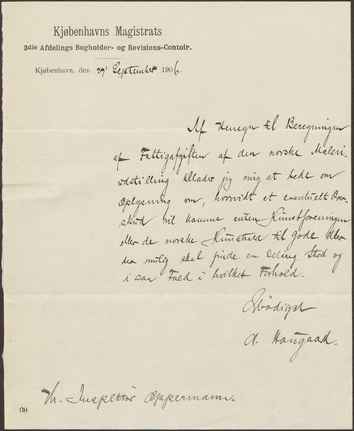 Kjøbenhavns Magistrats
3die Afdelings Bogholder- og Revisions-Contoir.
Kjøbenhavn, den 29' September 1906.
Af Hensyn til Beregningen
af Fattigafgiften af den norske Maleri-
udstilling tillader jeg mig at bede om
Oplysning om, hvorvidt et eventuelt Over-
skud vil komme enten Kunstforeningen
eller de norske Kunstnere til Gode eller
den mulig skal finde en Deling Sted og
i saa Fald i hvilket Forhold.
Ærbødigst
A. Haugaad.
Hr. Inspektør Oppermann.